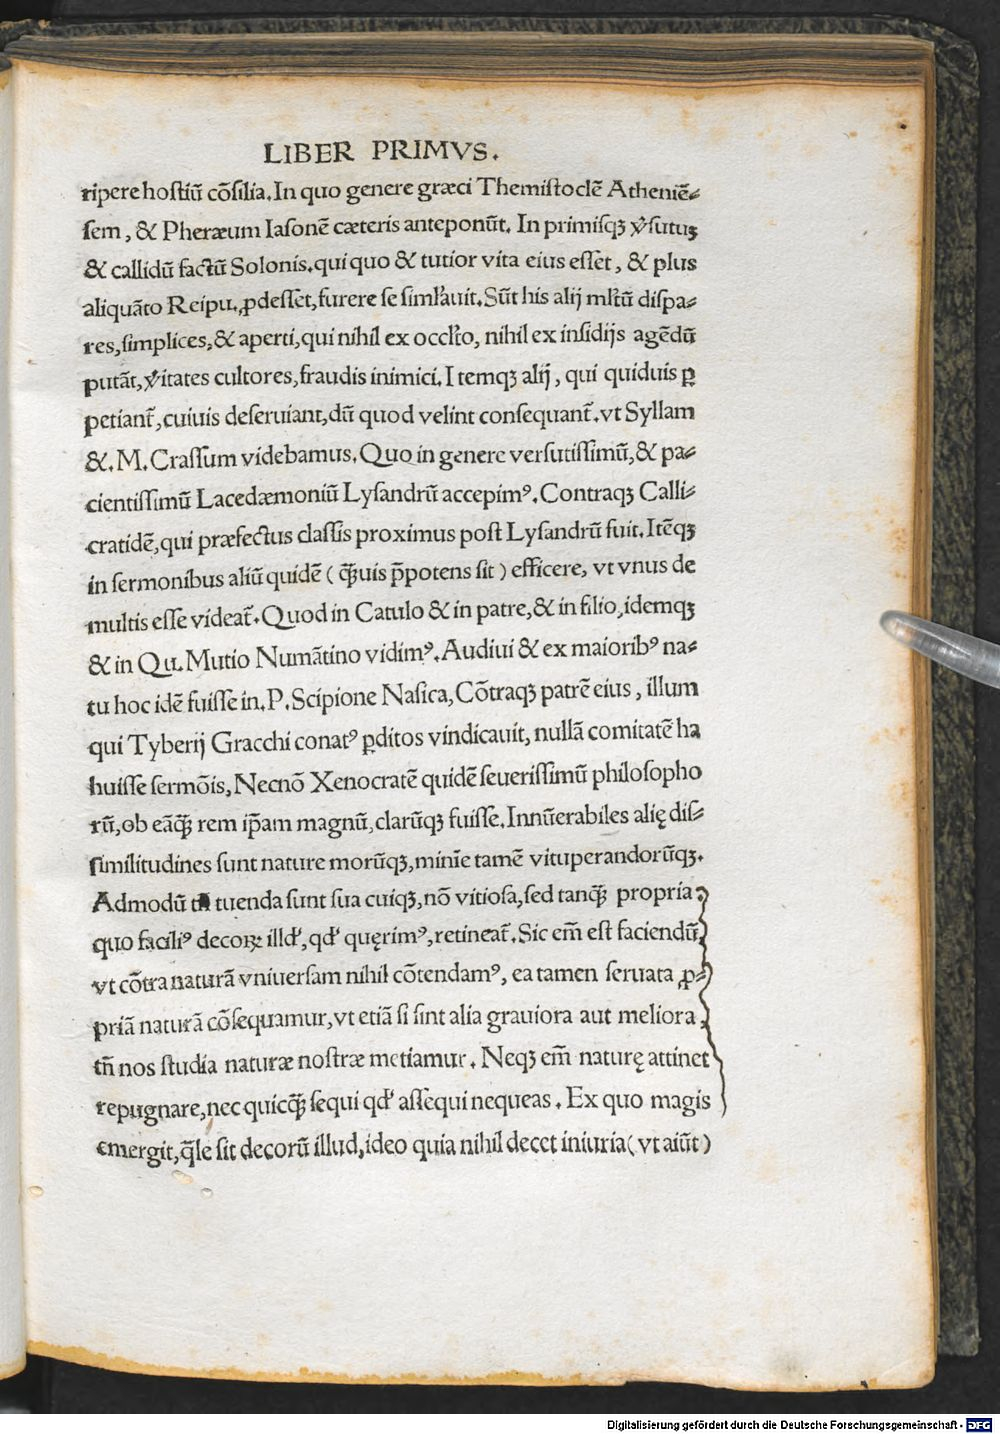 LIBER PRIMVS.
ripere hostiū cōsilia. In quo genere græci Themistoclē Atheniē⸗
sem, & Pheræum Iasonē cæteris anteponūt. In primisqꝫ v̓sutuꝫ
& callidū factū Solonis. qui quo & tutior vita eius esset, & plus
aliquāto Reipu. ꝓdesset, furere se siml̓auit. Sūt his alij ml̓tū dispa⸗
res, simplices, & aperti, qui nihil ex occl̓to, nihil ex insidijs agēdū
putāt, v̓itates cultores, fraudis inimici. Itemqꝫ alij, qui quiduis ꝑ
petiant᷑, cuiuis deseruiant, dū quod velint consequant᷑. vt Syllam
&. M. Crassum videbamus. Quo in genere versutissimū, & pa⸗
cientissimū Lacedæmoniū Lysandrū accepimꝰ. Contraqꝫ Calli⸗
cratidē, qui præfectus classis proximus post Lysandrū fuit. Itēqꝫ
in sermonibus aliū quidē (q̄̄uis p̄potens sit) efficere, vt vnus de
multis esse videat᷑. Quod in Catulo & in patre, & in filio, idemqꝫ
& in Qu. Mutio Numātino vidimꝰ. Audiui & ex maioribꝰ na⸗
tu hoc idē fuisse in. P. Scipione Nasica, Cōtraqꝫ patrē eius, illum
qui Tyberij Gracchi conatꝰ ꝑditos vindicauit, nullā comitatē ha
huisse sermōis, Necnō Xenocratē quidē seuerissimū philosopho
rū, ob eāq̄̄ rem ip̄am magnū, clarūqꝫ fuisse. Innūerabiles alię dis⸗
similitudines sunt nature morūqꝫ, minīe tamē vituperandorūqꝫ.
Admodū tuenda sunt sua cuiqꝫ, nō vitiosa, sed tanq̄̄ propria
quo faciliꝰ decoꝝ illd̓, qd̓ quęrimꝰ, retineat᷑. Sic em̄ est faciendū,
vt cōtra naturā vniuersam nihil cōtendamꝰ, ea tamen seruata ꝓ⸗
priā naturā cōsequamur, vt etiā si sint alia grauiora aut meliora,
tn̄ nos studia naturæ nostræ metiamur. Neqꝫ em̄ naturę attinet
repugnare, nec quicq̄̄ sequi qd̓ assequi nequeas. Ex quo magis
emergit, q̄le sit decorū illud, ideo quia nihil decet iniuria (vt aiūt)
Digitalisierung gefördert durch die Deutsche Forschungsgemeinschaft - DFG